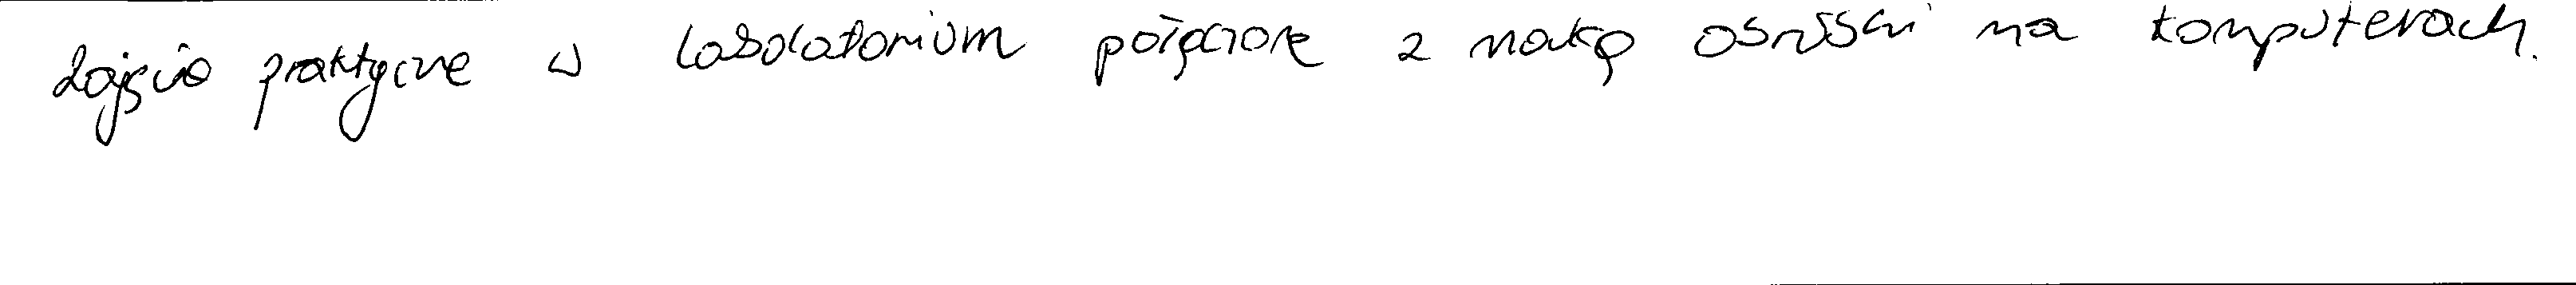 Zajęcia praktyczne w laboratorium połączone z nauką obsługi na komputerach.